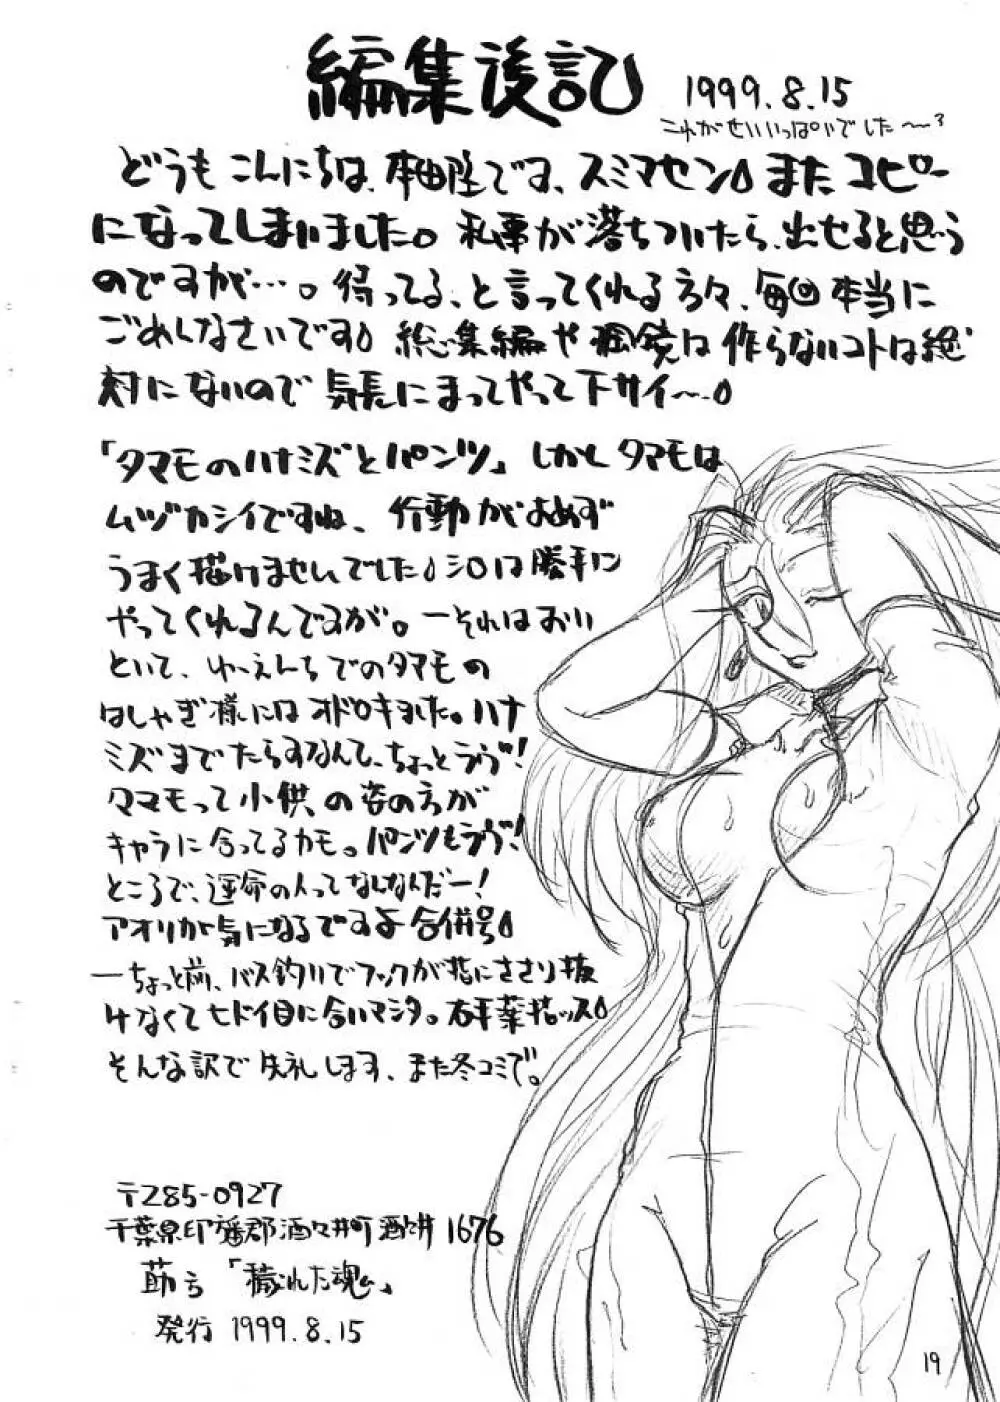 編集後記
1999.8.15
これがせいいっぱいでした〜
どうもこんにちは、本田陸です、スミマセンまたコピー
になってしまいました。私事が落ちついたら、出せると思う
のですが…。待ってる、と言ってくれる方々、毎回本当に
ごめんなさいです 総集編や 鏡は作らないコトは絶
対にないので気長にまってやって下サイ〜
「タマモのハナミズとパンツ」しかしタマモは
ムヅカシイですね、行動がおめず
うまく描けませんでした シロは勝手に
やってくれるんですが。ーそれはおい
といて、ゆーえんちでのタマモの
はしゃぎ様にはオドロキました。ハナ
ミズまでたらすなんて、ちょっとラヴ!
タマモって小供の姿の方が
キャラに合ってるカモ。パンツもラヴ!
ところで、運命の人ってなんなんだー!
アオリが気になるですよ合併号
ーちょっと前、バス釣りでフックが指にささり抜
けなくてヒドイ目に合いマシタ。右手薬指ッス
そんな訳で失礼します、また冬コミで。
〒285-0927
千葉県印旛郡酒々井町酒々井1676
方「穢れた魂」
発行 1999.8.15
19